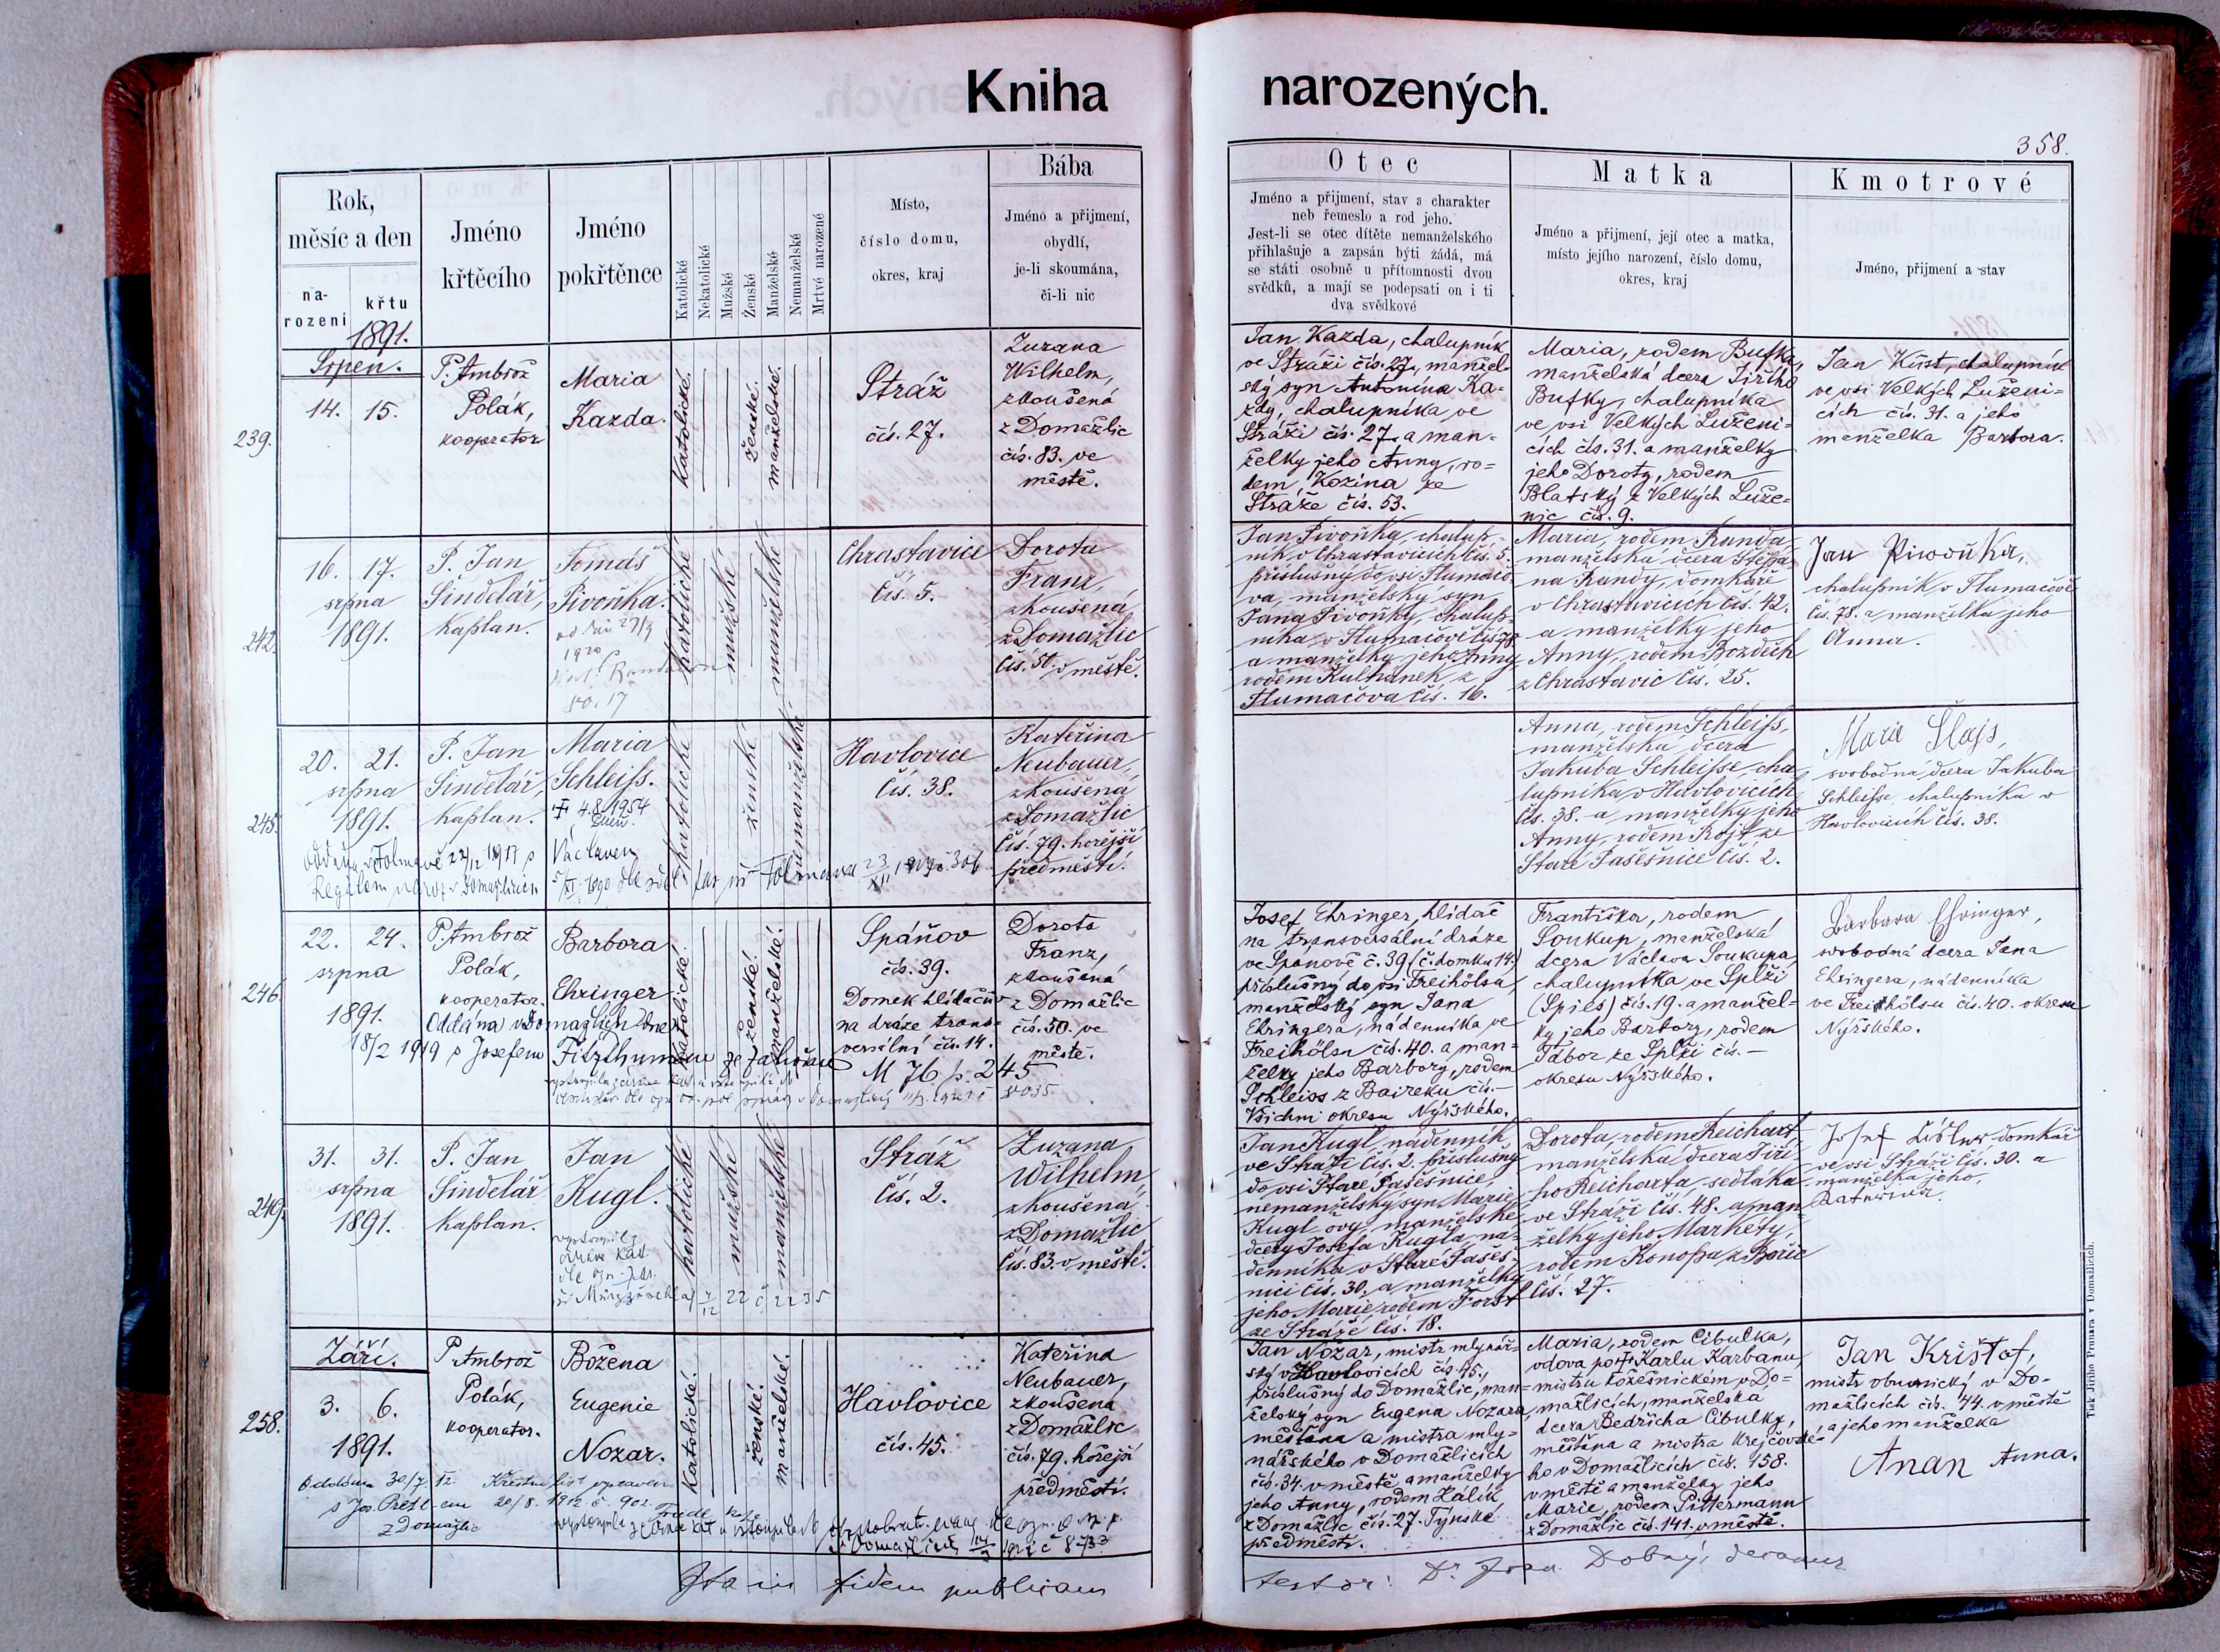 Kniha narozených.
358.
Rok,
měsíc a den
na-
rození
křtu
Jméno
křtěcího
Jméno
pokřtěnce
Katolické
Nekatolické
Mužské
Ženské
Manželské
Nemanželské
Mrtvé narozené
Místo,
číslo domu,
okres, kraj
Bába
Jméno a přijmení,
obydlí,
je-li skoumána,
či-li nic
Otec
Jméno a přijmení, stav a charakter
neb řemeslo a rod jeho.
Jest-li se otec dítěte nemanželského
přihlašuje a zapsán býti žádá, má
se státi osobně u přítomnosti dvou
svědků, a mají se podepsati on i ti
dva svědkové
Matka
Jméno a přijmení, její otec a matka,
místo jejího narození, číslo domu,
okres, kraj
Kmotrové
Jméno, přijmení a stav
1891.
Srpen.
239.
14. 15.
P. Ambrož
Polák,
kooperator
Maria
Kazda.
katolické.
ženské.
manželské.
Stráž
čís. 27.
Zuzana
Wilhelm,
zkoušená
z Domažlic
čís. 83. ve
městě.
Jan Kazda, chalupník
ve Stráži čís. 27., manžel-
ský syn Antonína Ka-
zdy, chalupníka ve
Stráži čís. 27. a man-
želky jeho Anny, ro-
dem Kozina ze
Stráže čís. 53.
Maria, rodem Bufka,
manželská dcera Jiřího
Bufky, chalupníka
ve vsi Velkých Luženi-
cích čís. 31. a manželky
jeho Doroty, rodem
Blatský z Velkých Luže-
nic čís. 9.
Jan Küst, chalupník
ve vsi Velkých Luženi-
cích čís. 31. a jeho
manželka Barbora.
242.
16. 17.
srpna
1891.
P. Jan
Šindelář,
kaplan.
Tomáš
Pivoňka.
1920
katolické
mužské
manželské
Chrastavice
čís. 5.
Dorota
Franz,
zkoušená
z Domažlic
čís. 50. v městě.
Jan Pivoňka, chalup-
ník v Chrastavicích čís. 5.
příslušný do vsi Tlumačo-
va, manželský syn
Jana Pivoňky, chalup-
níka v Tlumačově čís. 78.
a manželky jeho Anny
rodem Kulhánek z
Tlumačova čís. 16.
Maria, rodem Randa
manželská dcera Štěpá-
na Randy, domkáře
v Chrastavicích čís. 42.
a manželky jeho
Anny, rodem Bozděch
z Chrastavic čís. 25.
Jan Piwoňka,
chalupník v Tlumačově
čís. 78. a manželka jeho
Anna.
245.
20. 21.
srpna
1891.
P. Jan
Šindelář,
kaplan.
Maria
Schleiss.
4.8.1954
Václavem
katolické
ženské
nemanželské
Havlovice
čís. 38.
Kateřina
Neubauer,
zkoušená
z Domažlic
čís. 79. hořejší
předměstí.
Anna, rodem Schleiss,
manželská dcera
Jakuba Schleisse, cha-
lupníka v Havlovicích
čís. 38. a manželky jeho
Anny, rodem Rojt ze
Staré Pasečnice čís. 2.
Marie Šlajs,
svobodná dcera Jakuba
Schleisse, chalupníka v
Havlovicích čís. 38.
246.
22. 24.
srpna
1891.
P. Ambrož
Polák,
kooperator.
Barbora
Ehringer
Oddána v Domažlicích dne
18/2 1919 s Josefem Fitzthumem ze Zahořan
katolické.
ženské.
manželské.
Spáňov
čís. 39.
Domek hlídačův
na dráze trans-
versální čís. 14.
M 76 p. 245
Dorota
Franz,
zkoušená
z Domažlic
čís. 50. ve
městě.
Josef Ehringer, hlídač
na transversální dráze
ve Spánově č. 39 (č. domku 14.)
příslušný do vsi Freihölsu
manželský syn Jana
Ehringera, nádenníka ve
Freihölsu čís. 40. a man-
želky jeho Barbory, rodem
Schleiss z Baireku čís. —
Všichni okresu Nýrského.
Františka, rodem
Soukup, manželská
dcera Václava Soukupa,
chalupníka ve Splži
(Spies) čís. 19. a manžel-
ky jeho Barbory, rodem
Tábor ze Splži čís. —
okresu Nýrského.
Barbara Ehringer,
svobodná dcera Jana
Ehringera, nádenníka
ve Freihölsu čís. 40. okresu
Nýrského.
249.
31. 31.
srpna
1891.
P. Jan
Šindelář
kaplan.
Jan
Kugl.
katolické
mužské
manželské
Stráž
čís. 2.
Zuzana
Wilhelm
zkoušená
z Domažlic
čís. 83. v městě.
Jan Kugl, nádenník
ve Stráži čís. 2. příslušný
do vsi Staré Pasečnice,
nemanželský syn Marie
Kugl ovy, manželské
dcery Josefa Kugla, ná-
denníka v Staré Paseč-
nici čís. 30. a manželky
jeho Marie, rodem Forst
ze Stráže čís. 18.
Dorota, rodem Reichart
manželská dcera Jiří-
ho Reicharta, sedláka
ve Stráži čís. 48. a man-
želky jeho Markety,
rodem Konopa z Bořic
čís. 27.
Josef domkář
ve vsi Stráži čís. 30. a
manželka jeho,
Katerina.
Září.
258.
3. 6.
1891.
P. Ambrož
Polák,
kooperator.
Božena
Eugenie
Nozar.
katolické.
ženské.
manželské.
Havlovice
čís. 45.
Kateřina
Neubauer,
zkoušená
z Domažlic
čís. 79. hořejší
předměstí.
Oddána 30/7. 12.
z Domažlic
Jan Nozar, mistr mlynář-
ský v Havlovicích čís. 45.,
příslušný do Domažlic, man-
želský syn Eugena Nozara,
měšťana a mistra mly-
nářského v Domažlicích
čís. 34. v městě a manželky
jeho Anny, rodem Hálík
z Domažlic čís. 27. Týnské
předměstí.
Maria, rodem Cibulka,
vdova po † Karlu Karbanu,
mistru kožešnickém v Do-
mažlicích, manželská
dcera Bedřicha Cibulky,
měšťana a mistra krejčovské-
ho v Domažlicích čís. 158.
v městě a manželky jeho
Marie, rodem Pittermann
z Domažlic čís. 141. v městě.
Jan Krištof,
mistr obuvnický v Do-
mažlicích čís. 44. v městě
, a jeho manželka
Anna.
Ita in fidem publicam
testor: Dobrý,
Tisk Jiřího Prunara v Domažlicích.